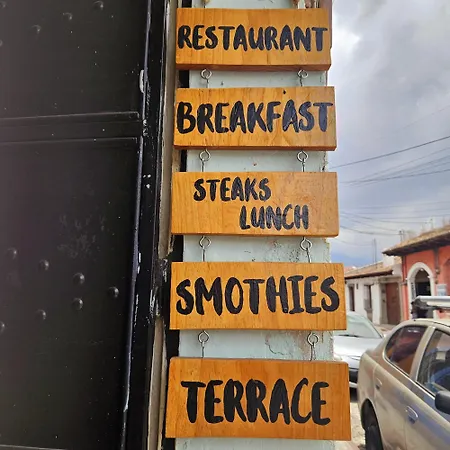 RESTAURANT
BREAKFAST
STEAKS
LUNCH
SMOTHIES
TERRACE